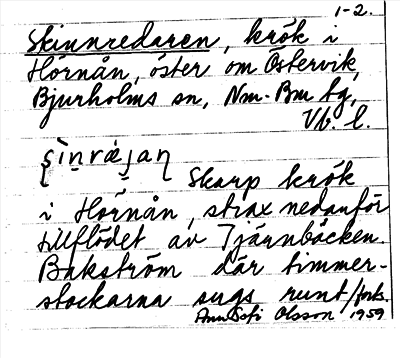 1-2.
Skinnredaren, krök i
Hörnån, öster om Östervik,
Bjurholms sn, Nm-Bm tg,
Vb. l.
Skarp krök
i Hörnån, strax nedanför
tillflödet av Tjärnbäcken.
Bakström där timmer-
stockarna sugs runt/forts.
Ann Sofi Olsson 1959